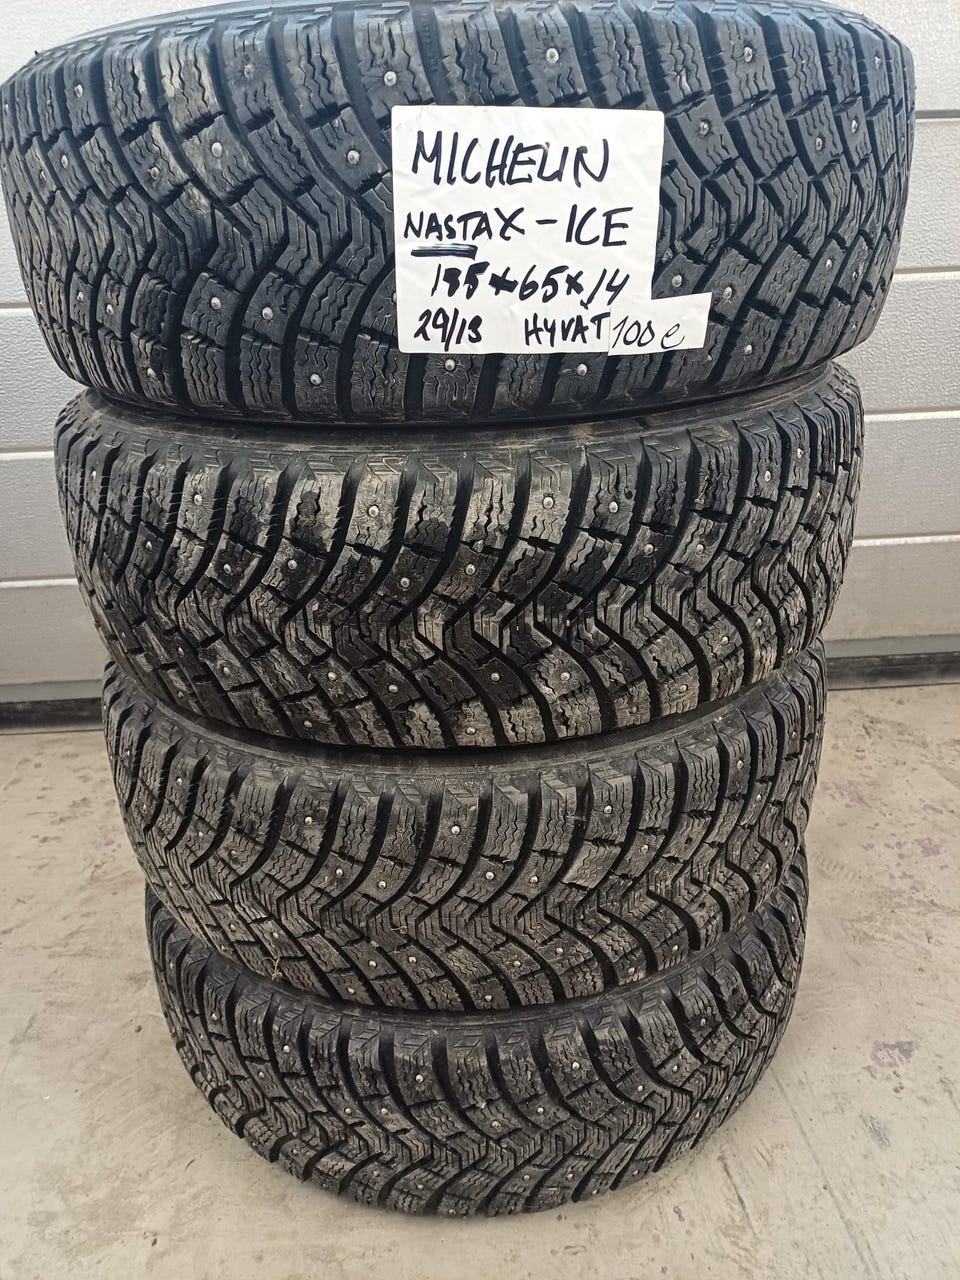 MICHELIN
NASTA X-ICE
×65×14
29/13 HYVÄT 100 e